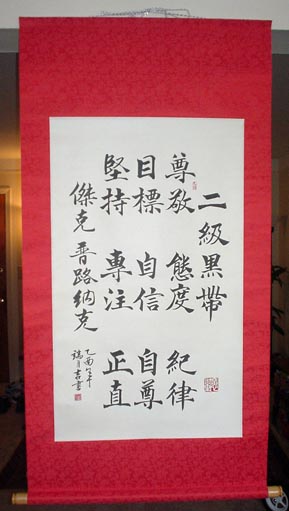 二級黑帶
尊敬 態度 紀律
目標 自信 自尊
堅持 專注 正直
傑克 普路納克
乙酉年